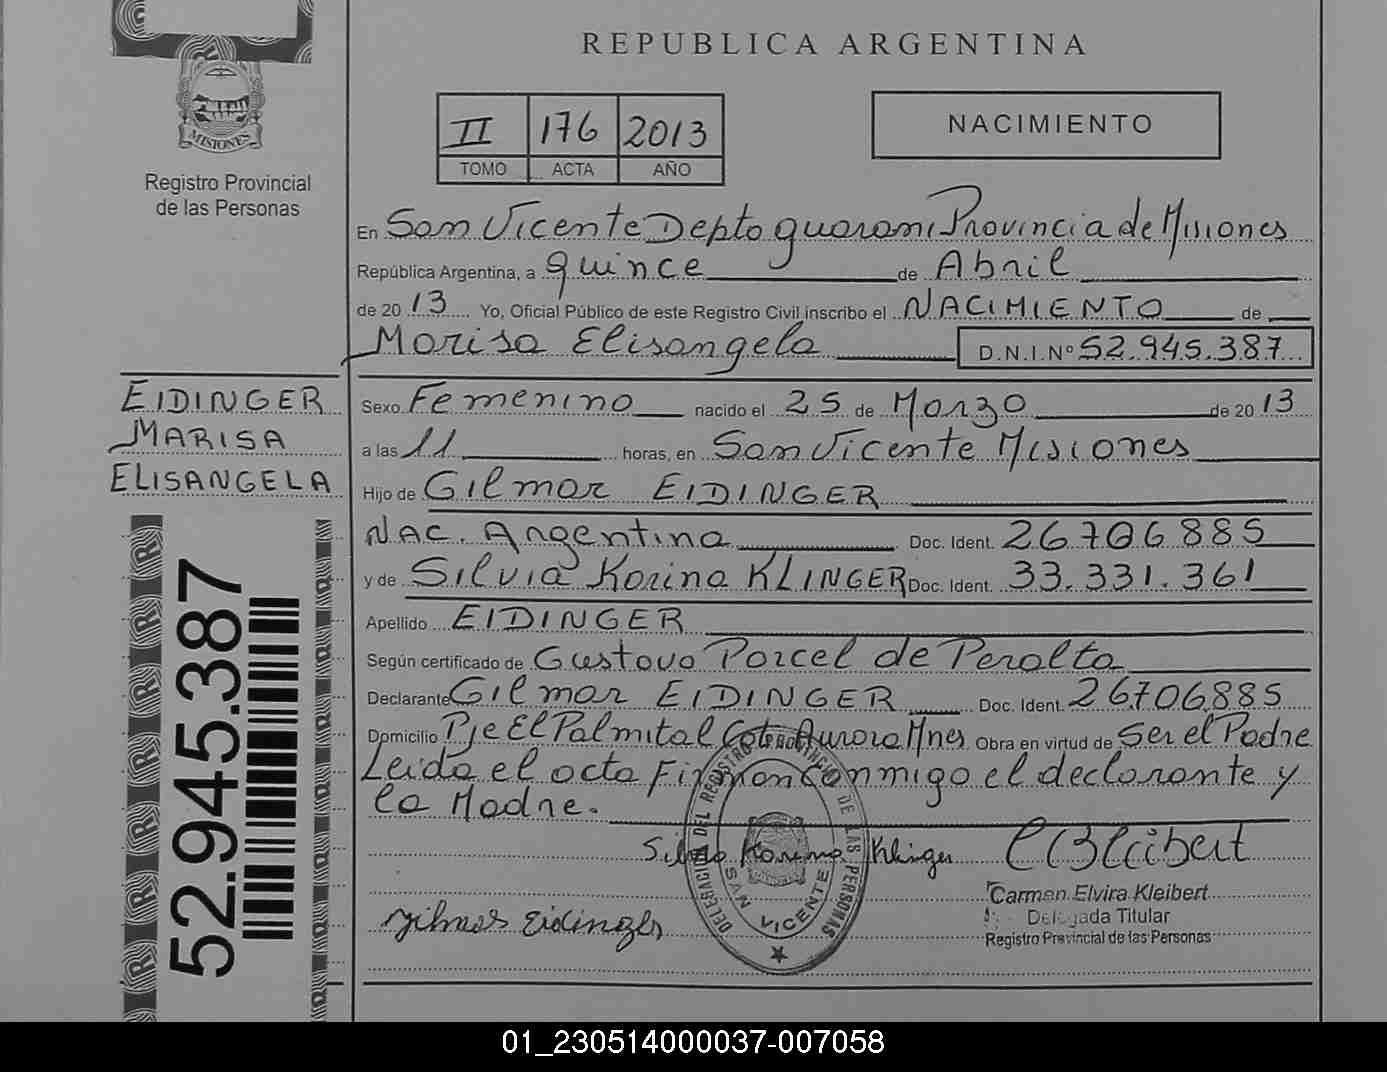 REPUBLICA ARGENTINA
MISIONES
Registro Provincial
de las Personas
II 176 2013
TOMO ACTA AÑO
NACIMIENTO
En San Vicente Depto guarani Provincia de Misiones
República Argentina, a quince de Abril
de 20 13 Yo, Oficial Público de este Registro Civil inscribo el NACIMIENTO de
Marisa Elisangela D.N.I.Nº 52.945.387
EIDINGER
MARISA
ELISANGELA
Sexo Femenino nacido el 25 de Marzo de 20 13
a las 11 horas, en San Vicente Misiones
Hijo de Gilmar EIDINGER
NAC. Argentina Doc. Ident. 26.706.885
y de Silvia Karina KLINGER Doc. Ident. 33.331.361
Apellido EIDINGER
Según certificado de Gustavo Porcel de Peralta
Declarante Gilmar EIDINGER Doc. Ident. 26.706.885
Domicilio Pje El Palmital Cot. Aurora Mnes Obra en virtud de Ser el Padre
Leida el acta Firman Conmigo el declarante y
la Madre.
Silvia Karina Klinger
DELEGACION DEL REGISTRO PROVINCIAL DE LAS PERSONAS
SAN VICENTE
Carmen Elvira Kleibert
Delegada Titular
Registro Provincial de las Personas
52.945.387
01_230514000037-007058